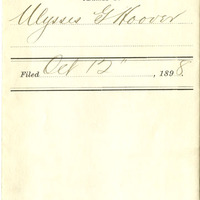 Ulysses G Hoover
Filed Oct 12", 1898.